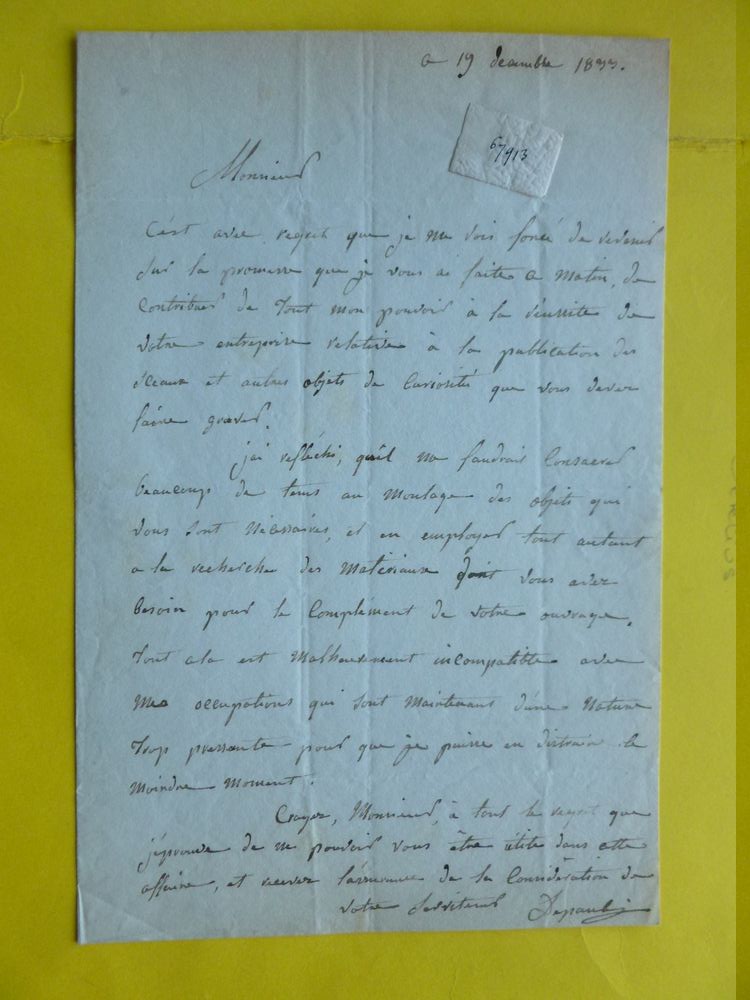 ce 19 decembre 1833.
67/913
Monsieur
C'est avec regret que je me vois forcé de revenir
sur la promesse que je vous ai faite ce matin, de
contribuer de tout mon pouvoir à la réussite de
votre entreprise relative à la publication des
sceaux et autres objets de curiosité que vous devez
faire graver.
j'ai refléchi, qu'il me faudrait consacrer
beaucoup de tems au moulage des objets qui
vous sont nécessaires, et en employer tout autant
a la recherche des matériaux dont vous avez
besoin pour le complément de votre ouvrage.
tout cela est malheureusement incompatible avec
mes occupations qui sont maintenant d'une nature
trop pressante pour que je puisse en distraire le
moindre moment.
Croyez, Monsieur, à tout le regret que
j'éprouve de ne pouvoir vous être utile dans cette
affaire, et recevez l'assurance de la considération de
votre serviteur Depaulis